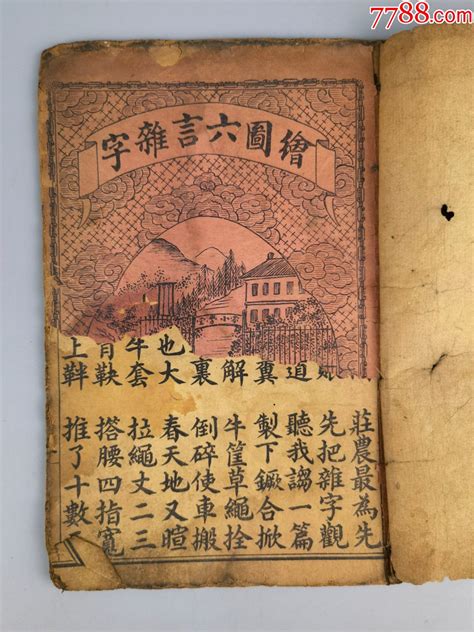 7788.com
繪圖六言雜字
莊農最為先
先把雜字觀
道
聽我謅一篇
糞
製下鐝合掀
解
牛筐草繩拴
裏
倒碎使車搬
也大
春天地又暄
牛套
拉繩丈二三
鞅
搭腰四指寬
上靽
推了十數